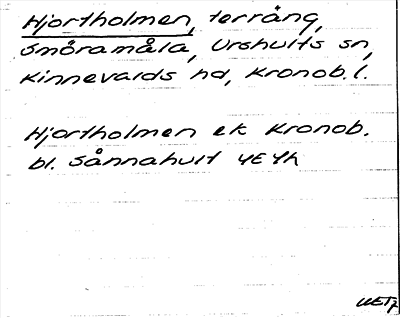 Hjortholmen, terräng,
Smöramåla, Urshults sn,
Kinnevalds hd, Kronob. l.
Hjortholmen ek Kronob.
bl. Sånnahult 4E4h